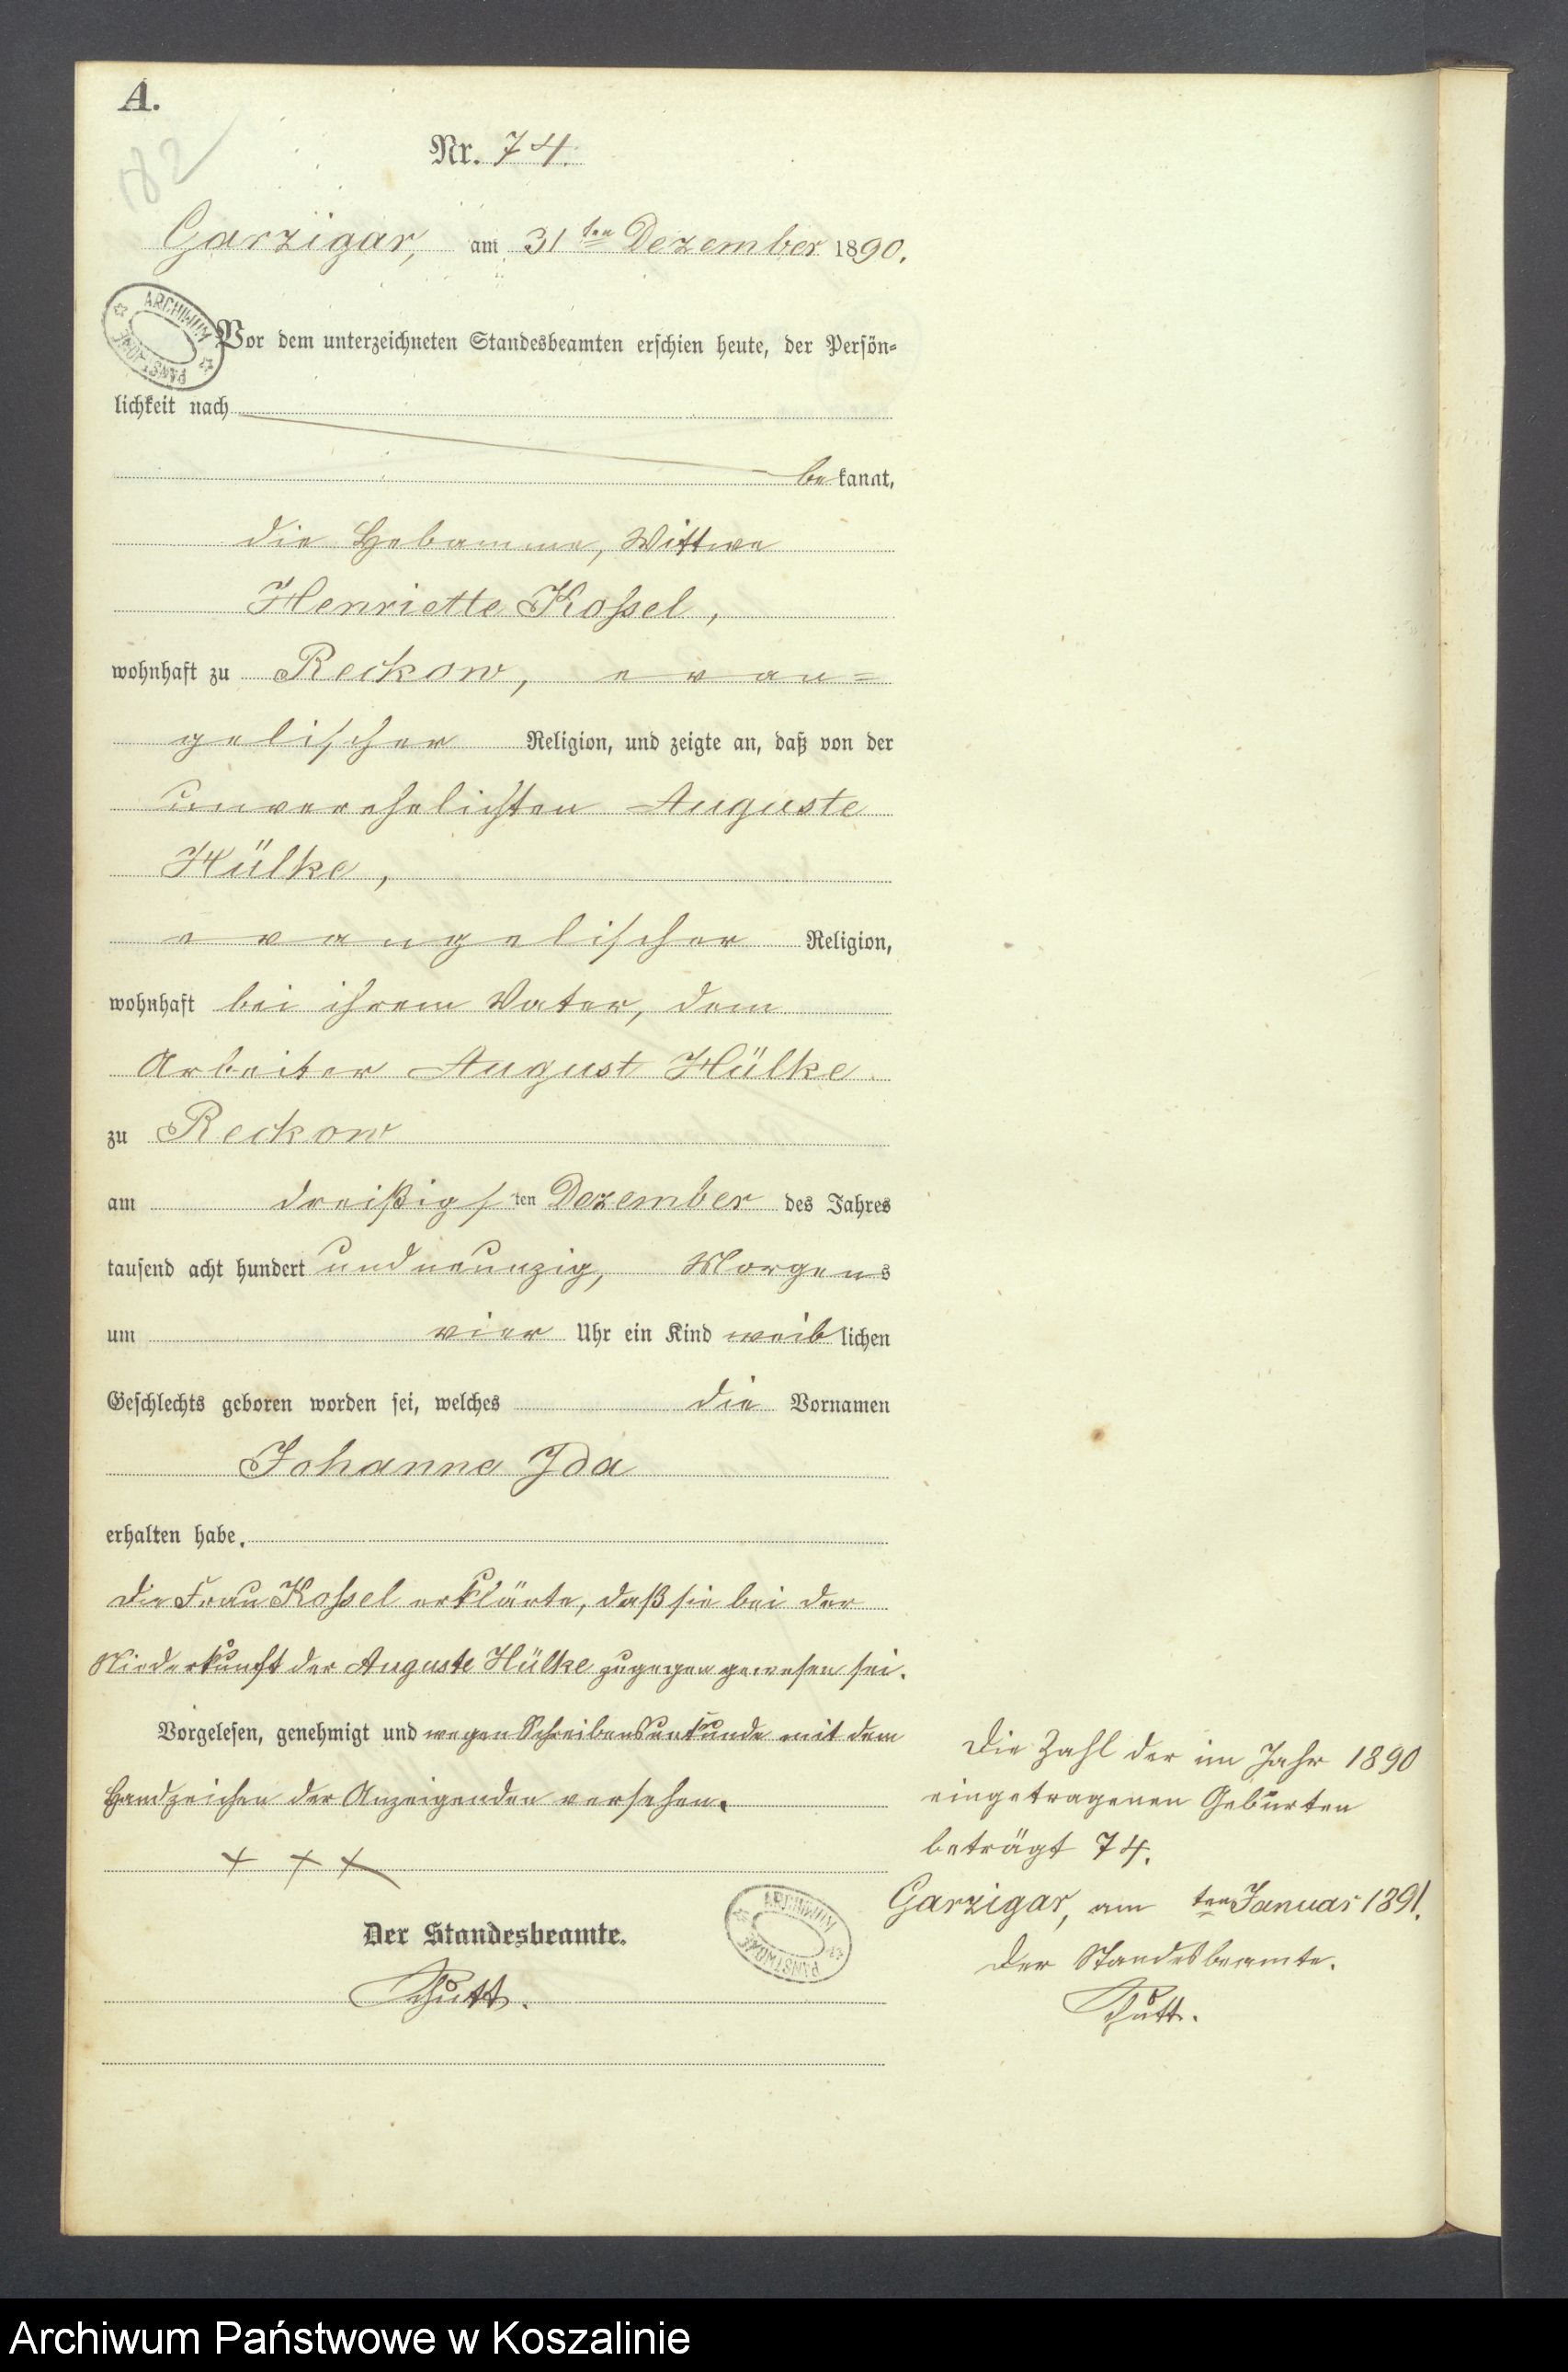 A.
182
Nr. 74.
Garzigar, am 31ten Dezember 1890.
ARCHIWUM PAŃSTWOWE
Vor dem unterzeichneten Standesbeamten erschien heute, der Persön=
lichkeit nach
bekannt,
die Hebamme, Wittwe
Henriette Koßel,
wohnhaft zu Reckow, evan=
gelischer Religion, und zeigte an, daß von der
unverehelichten Auguste
Hülke,
evangelischer Religion,
wohnhaft bei ihrem Vater, dem
Arbeiter August Hülke
zu Reckow
am dreißigsten Dezember des Jahres
tausend acht hundert und neunzig, Morgens
um vier Uhr ein Kind weiblichen
Geschlechts geboren worden sei, welches die Vornamen
Johanne Ida
erhalten habe.
Die Frau Koßel erklärte, daß sie bei der
Niederkunft der Auguste Hülke zugegen gewesen sei.
Vorgelesen, genehmigt und wegen Schreibensunkunde mit dem
Handzeichen der Anzeigenden versehen.
+ + +
Der Standesbeamte.
Schutt.
ARCHIWUM PAŃSTWOWE
Die Zahl der im Jahr 1890
eingetragenen Geburten
beträgt 74.
Garzigar, am ten Januar 1891.
Der Standesbeamte.
Schutt.
Archiwum Państwowe w Koszalinie